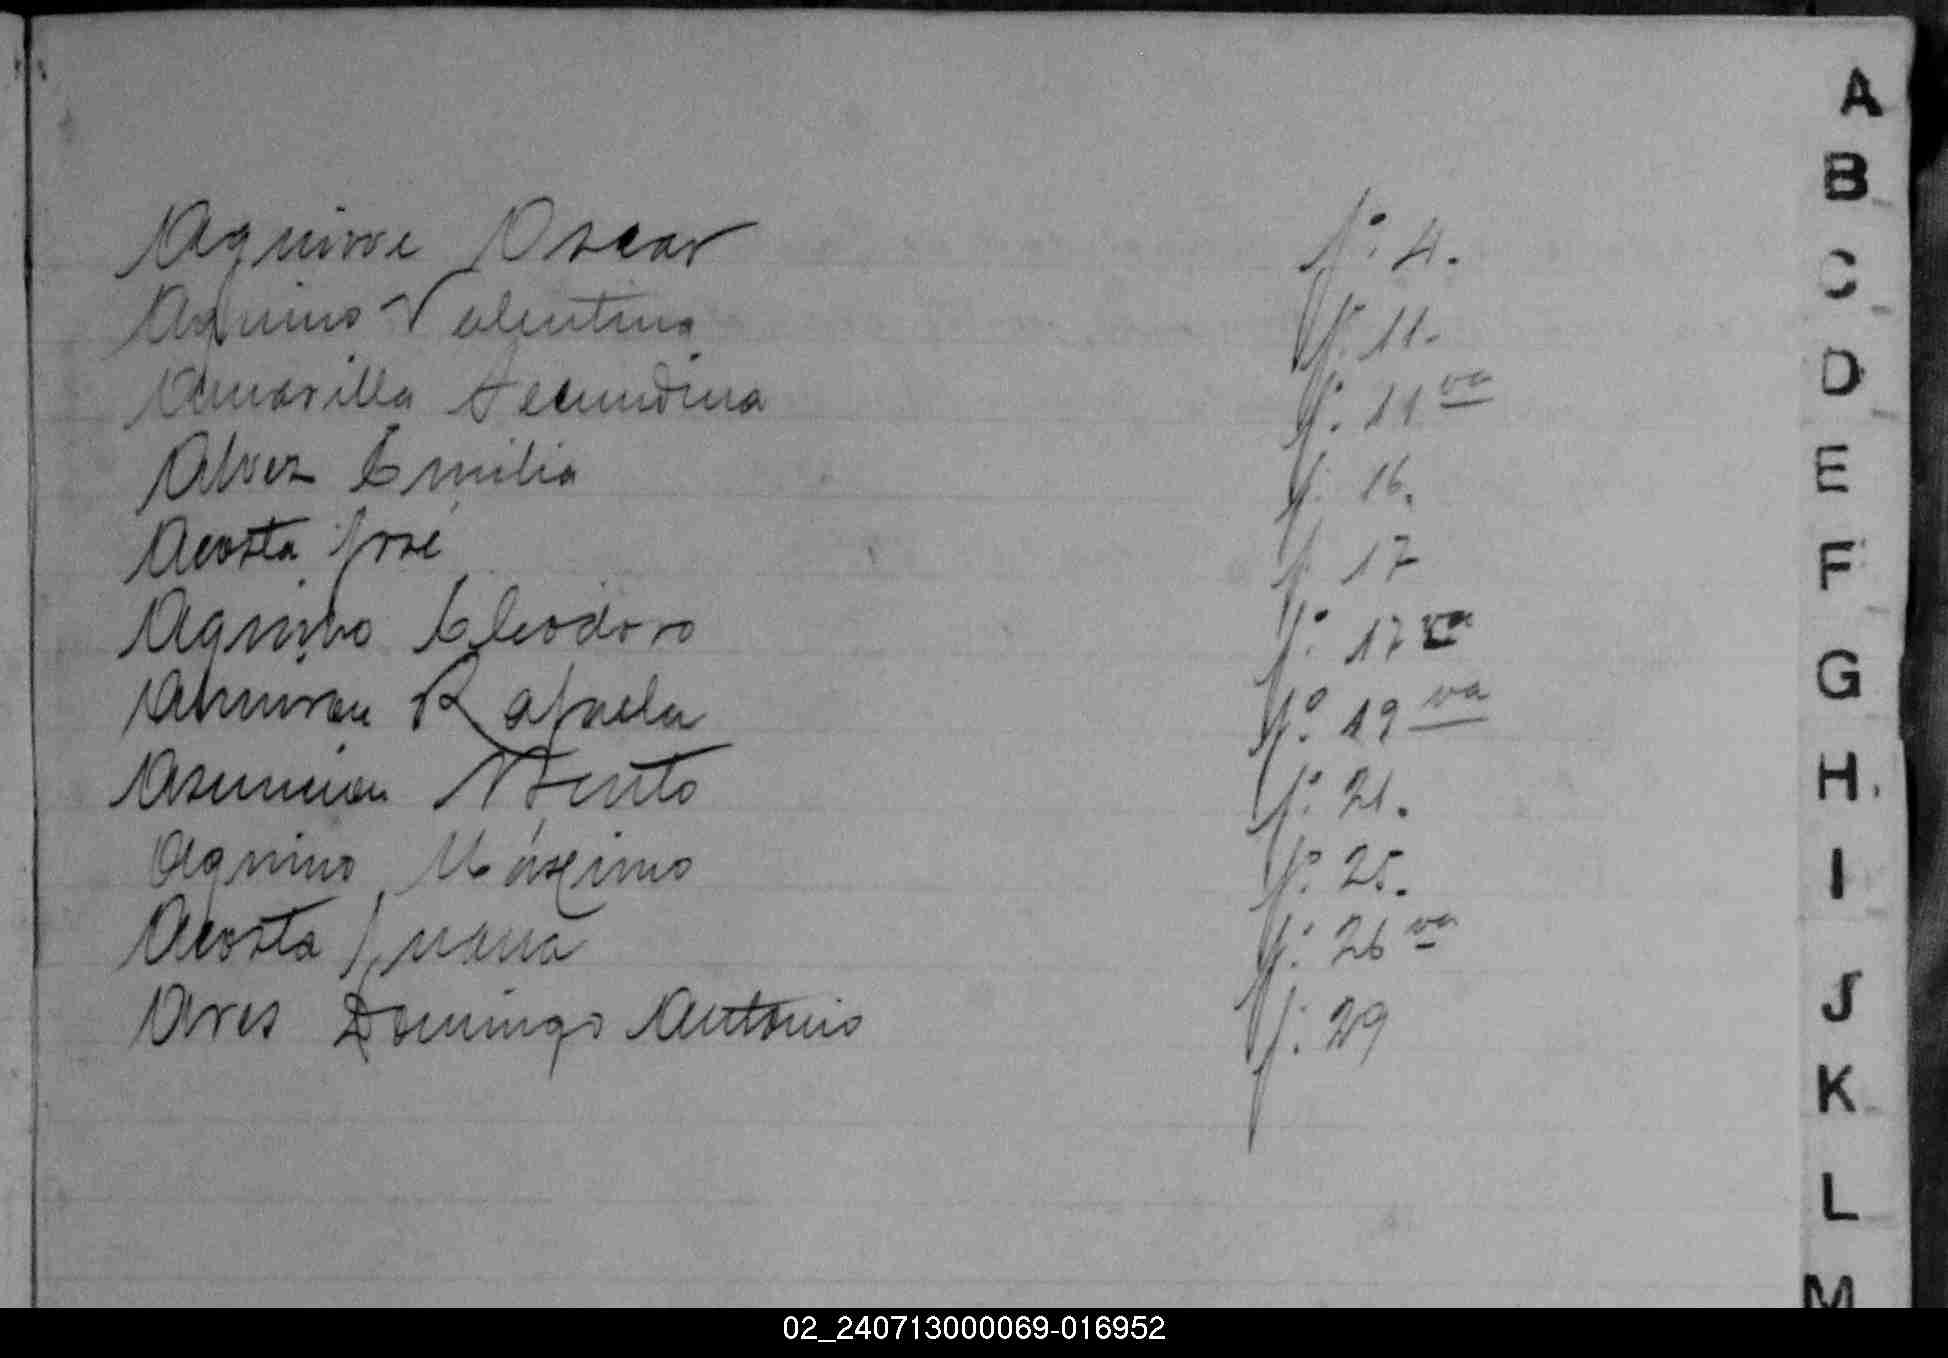 Aguirre Oscar fº: 4.
Aquino Valentina fº: 11.
Amarilla Secundina fº: 11 va
Alvez Emilia fº: 16.
Acosta José fº 17
Aquino Eleodoro fº: 17 va
Rafaela fº: 19 va
Asuncion Benito fº: 21.
Aquino Máximo fº: 25.
Acosta Juana fº: 26 va
Ares Domingo Antonio fº: 29
A
B
C
D
E
F
G
H
I
J
K
L
M
02_240713000069-016952